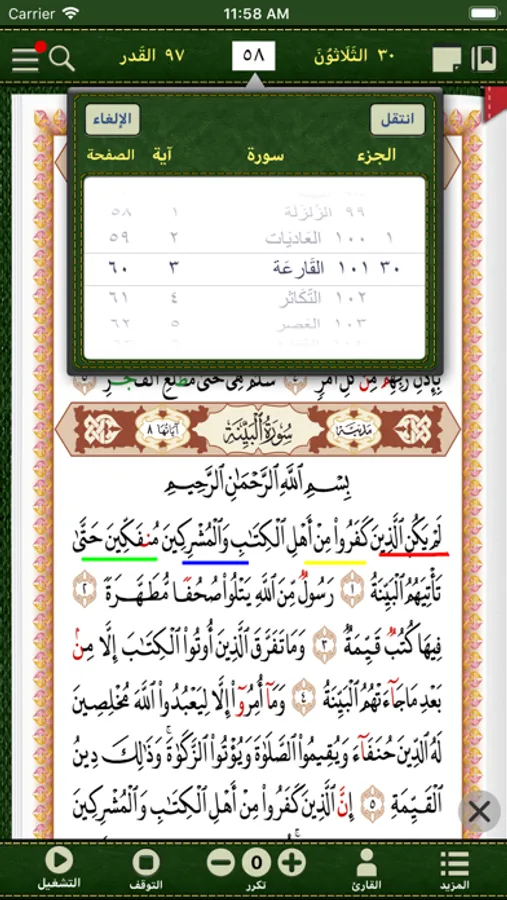 Carrier 11:58 AM
٣٠ الثَّلَاثُونَ ٥٨ ٩٧ القَدر
انتقل الإلغاء
الجزء سورة آية الصفحة
٩٩ الزَّلزَلَة ١ ٥٨
١ ١٠٠ العَاديَات ٢ ٥٩
٣٠ ١٠١ القَارعَة ٣ ٦٠
١٠٢ التَّكَاثُر ٤ ٦١
١٠٣ العَصر ٥ ٦٢
بِإِذْنِ رَبِّهِم مِّن كُلِّ أَمْرٍ ٤ سَلَٰمٌ هِىَ حَتَّىٰ مَطْلَعِ ٱلْفَجْرِ ٥
مَدَنِيَّة سُورَةُ ٱلْبَيِّنَةِ آيَاتُهَا ٨
بِسْمِ ٱللَّهِ ٱلرَّحْمَٰنِ ٱلرَّحِيمِ
لَمْ يَكُنِ ٱلَّذِينَ كَفَرُوا۟ مِنْ أَهْلِ ٱلْكِتَٰبِ وَٱلْمُشْرِكِينَ مُنفَكِّينَ حَتَّىٰ
تَأْتِيَهُمُ ٱلْبَيِّنَةُ ١ رَسُولٌ مِّنَ ٱللَّهِ يَتْلُوا۟ صُحُفًا مُّطَهَّرَةً ٢
فِيهَا كُتُبٌ قَيِّمَةٌ ٣ وَمَا تَفَرَّقَ ٱلَّذِينَ أُوتُوا۟ ٱلْكِتَٰبَ إِلَّا مِنۢ
بَعْدِ مَا جَآءَتْهُمُ ٱلْبَيِّنَةُ ٤ وَمَآ أُمِرُوٓا۟ إِلَّا لِيَعْبُدُوا۟ ٱللَّهَ مُخْلِصِينَ
لَهُ ٱلدِّينَ حُنَفَآءَ وَيُقِيمُوا۟ ٱلصَّلَوٰةَ وَيُؤْتُوا۟ ٱلزَّكَوٰةَ ۚ وَذَٰلِكَ دِينُ
ٱلْقَيِّمَةِ ٥ إِنَّ ٱلَّذِينَ كَفَرُوا۟ مِنْ أَهْلِ ٱلْكِتَٰبِ وَٱلْمُشْرِكِينَ
0
المزيد القارئ تكرر التوقف التشغيل